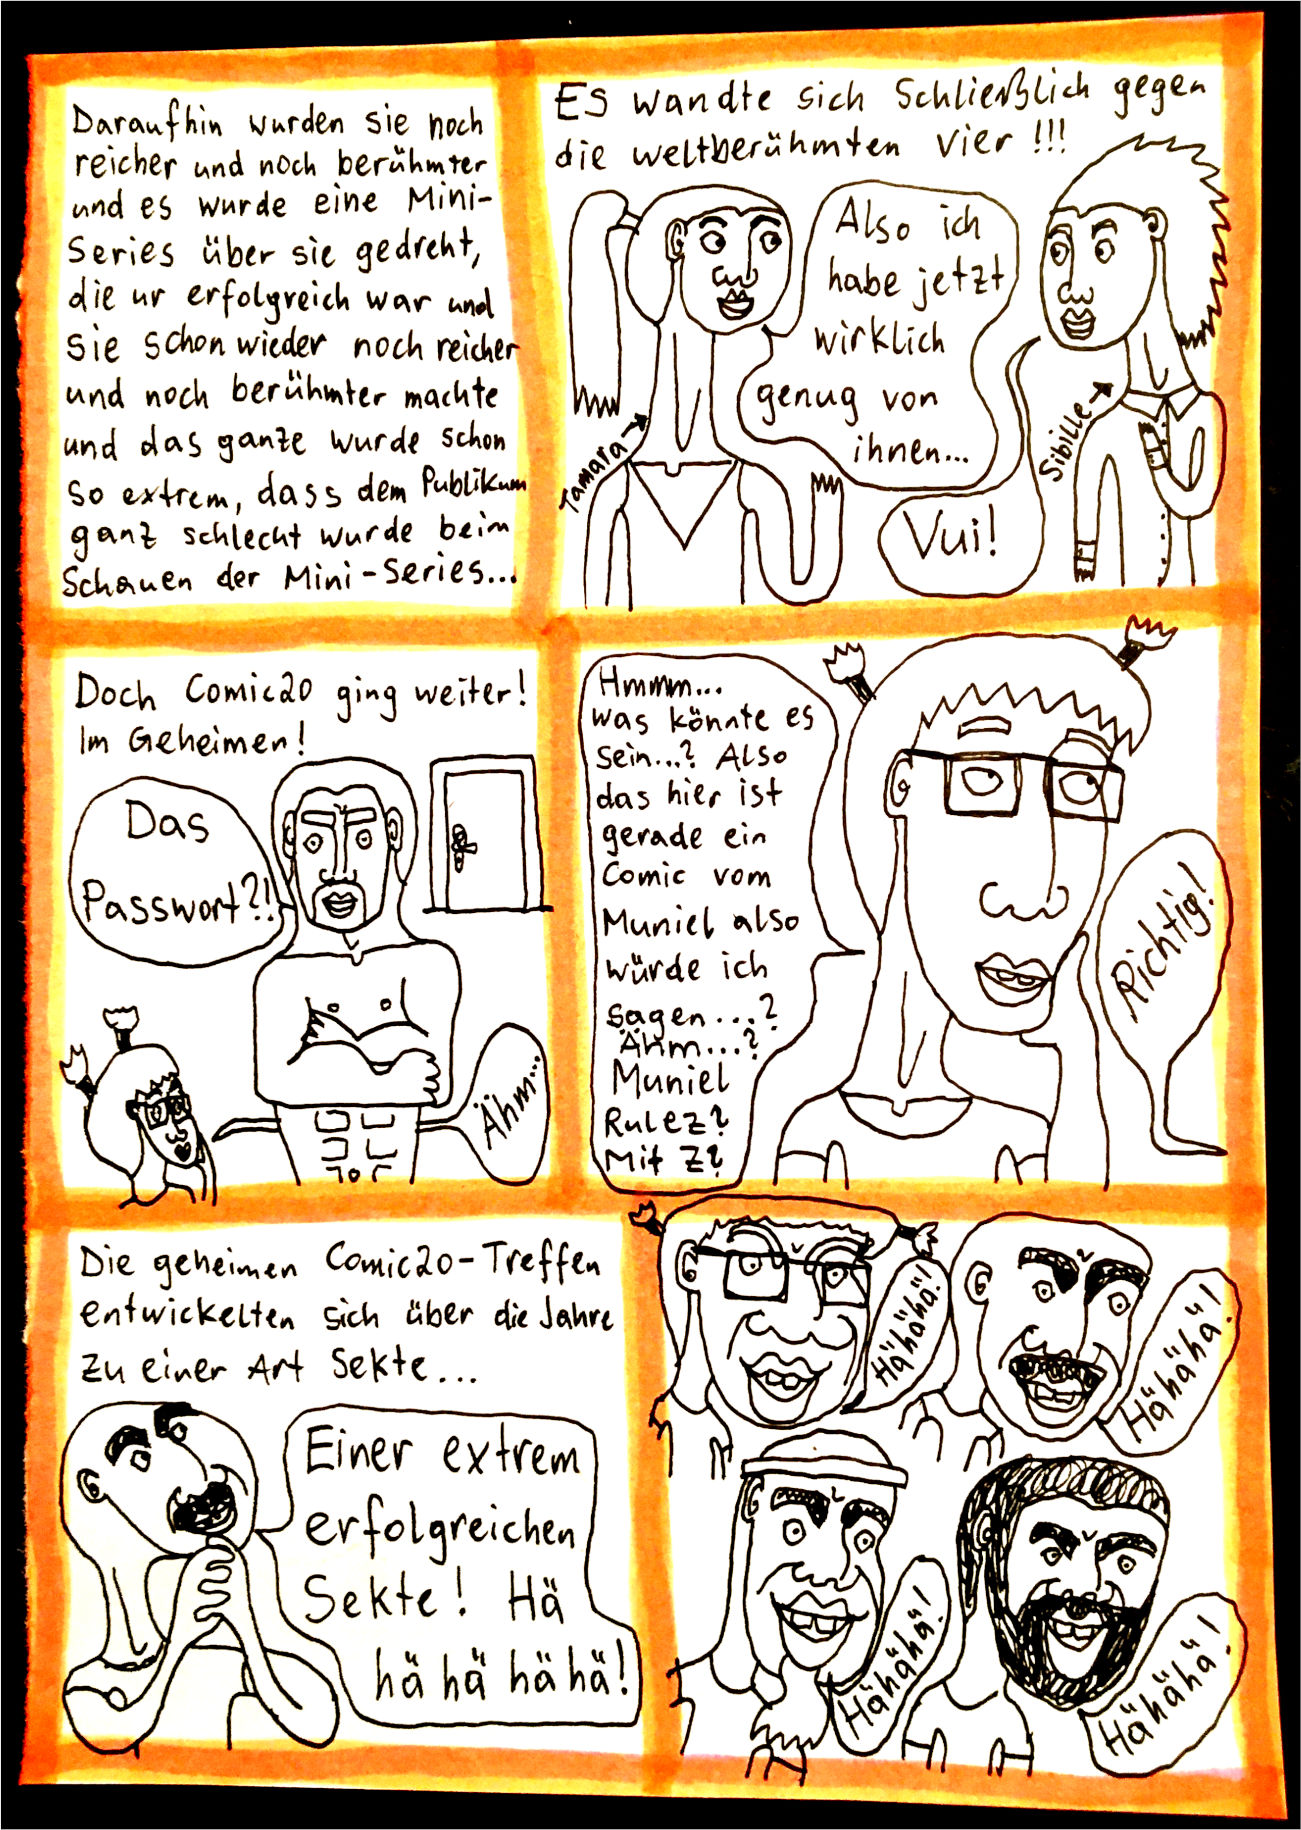 Daraufhin wurden sie noch
reicher und noch berühmter
und es wurde eine Mini-
Series über sie gedreht,
die ur erfolgreich war und
sie schon wieder noch reicher
und noch berühmter machte
und das ganze wurde schon
so extrem, dass dem Publikum
ganz schlecht wurde beim
Schauen der Mini-Series...
Es wandte sich Schließlich gegen
die weltberühmten Vier!!!
Also ich
habe jetzt
wirklich
genug von
ihnen...
Tamara
Sibille
Vui!
Doch Comic20 ging weiter!
Im Geheimen!
Das
Passwort?!
Ähm...
Hmmm...
was könnte es
sein...? Also
das hier ist
gerade ein
Comic vom
Muniel also
würde ich
sagen...?
Ähm...?
Muniel
Rulez?
Mit Z?
Richtig!
Die geheimen Comic20-Treffen
entwickelten sich über die Jahre
zu einer Art Sekte...
Einer extrem
erfolgreichen
Sekte! Hä
hä hä hä hä!
Hähähä!
Hähähä!
Hähähä!
Hähähä!